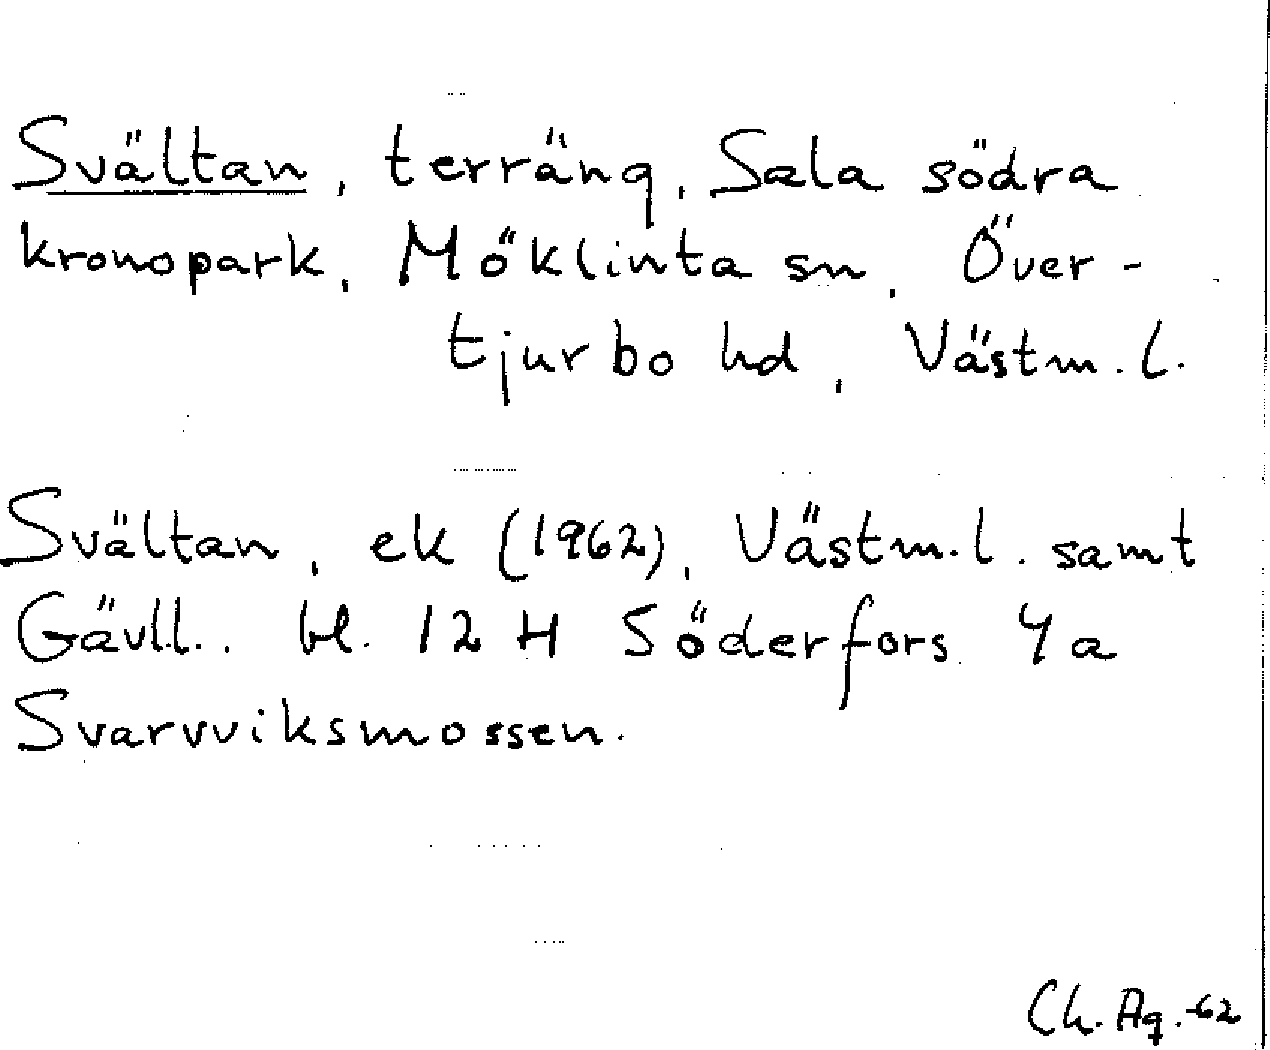 Svältan, terräng, Sala södra
kronopark, Möklinta sn, Över-
tjurbo hd, Västm. l.
Svältan, ek (1962), Västm. l. samt
Gävl.l.. bl. 12 H Söderfors 4a
Svarvviksmossen.
Ch. Ag. -62